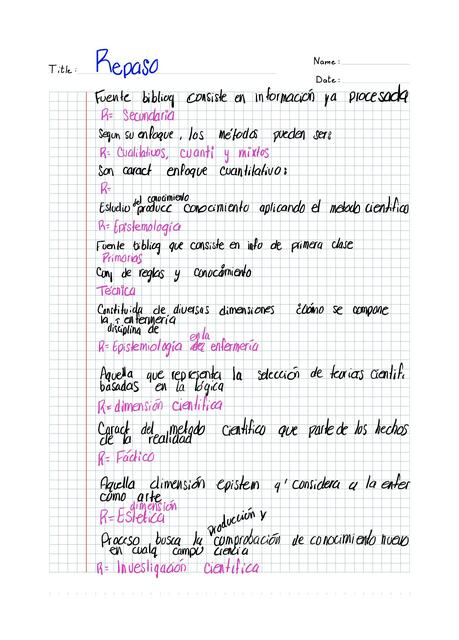 Title: Repaso
Name:
Date:
Fuente bibliog consiste en información ya procesada
R= Secundaria
Segun su enfoque, los métodos pueden ser:
R= Cualitativos, cuanti y mixtos
Son caract enfoque cuantitativo:
R=
Estudio del conocimiento producc conocimiento aplicando el metodo cientifico
R= Epistemologia
Fuente bibliog que consiste en info de primera clase
Primarias
Conj de reglas y conocimiento
Técnica
Constituida de diversas dimensiones ¿Cómo se compone
la disciplina de enfermería
R= Epistemiologia en la enfermería
Aquella que representa la selección de teorias cientifi.
basadas en la lógica
R= dimensión cientifica
Caract del metodo cientifico que parte de los hechos
de la realidad
R= Fáctico
Aquella dimensión epistem q' considera a la enfer
como arte
R= dimensión Estética
Proceso busca la producción y comprobación de conocimiento nuevo
en cualq campo ciencia
R= Investigación cientifica